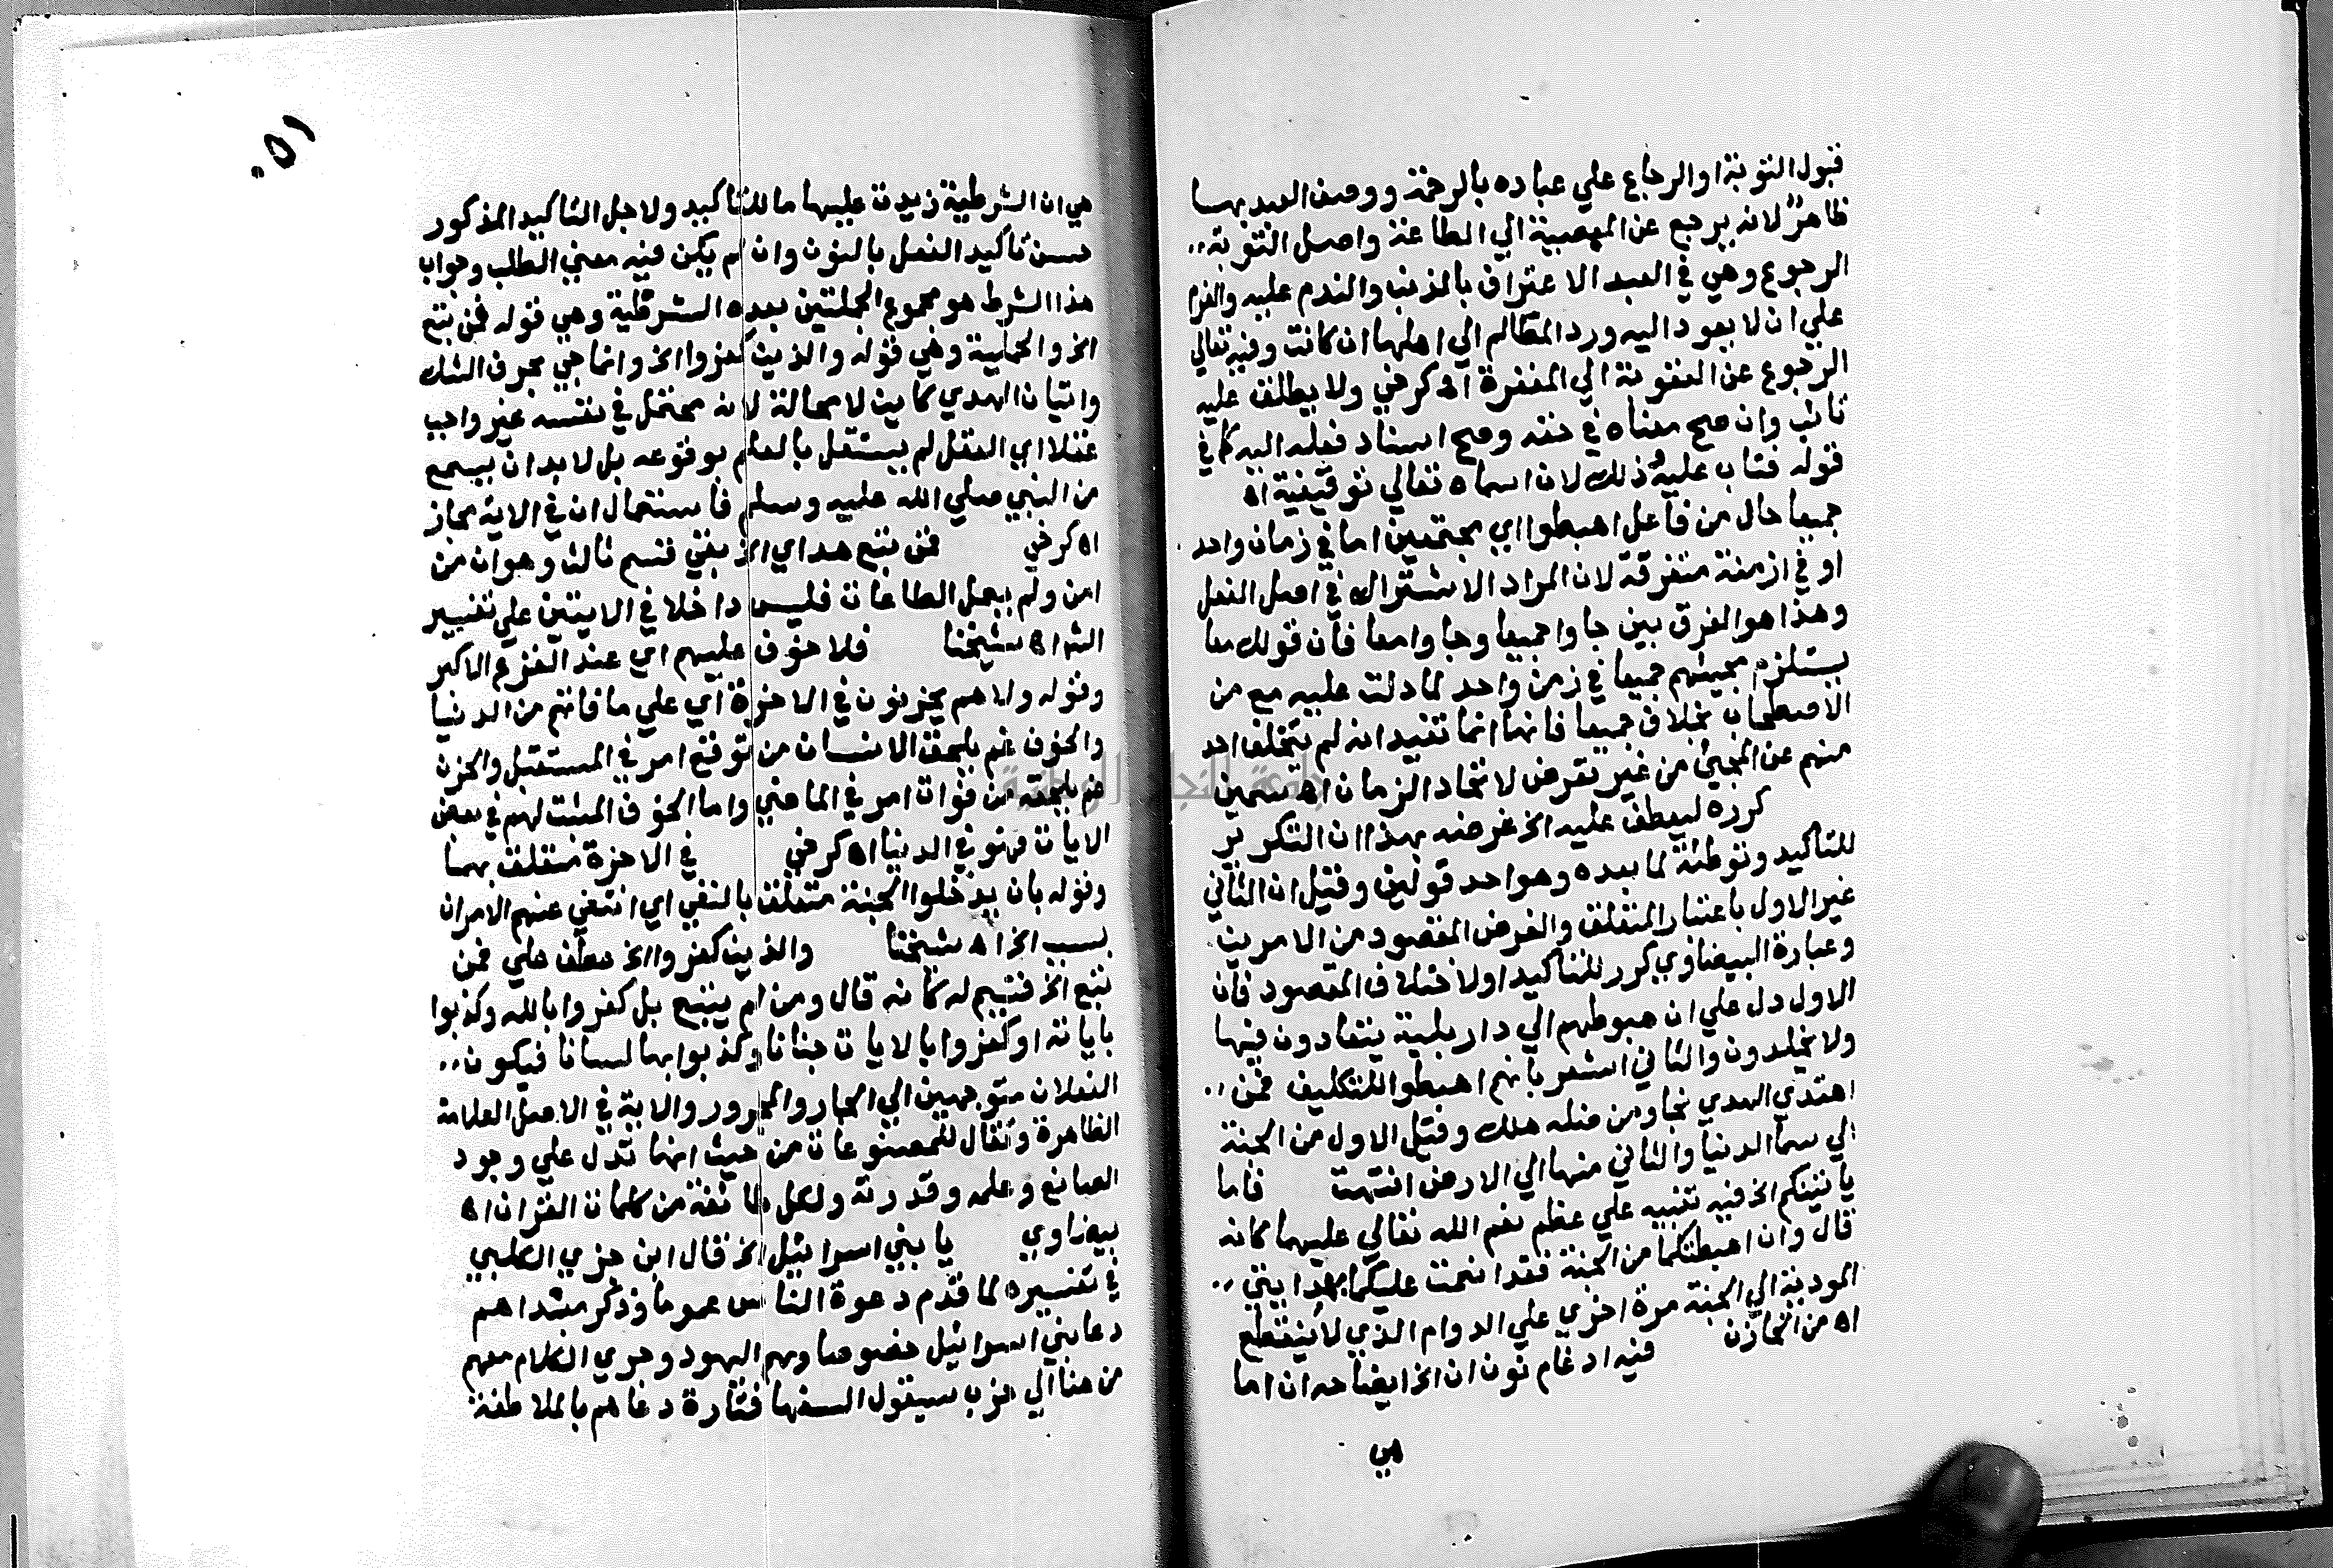 قبول التوبة او الرجاع علي عباده بالرحمة ووصف العبد بها
ظاهر لانه يرجع عن المعصية الي الطاعة واصل التوبة
الرجوع وهي في العبد الاعتراف بالذنب والندم عليه والعزم
علي ان لا يعود اليه ورد المظالم الي اهلها ان كانت وفيه تعالي
الرجوع عن العقوبة الي المغفرة اه كرخي ولا يطلق عليه
تائب وان صح معناه في حقه وصح اسناد فعله اليه كما في
قوله فتاب عليه ذلك لان اسماه تعالي توقيفية اه
جميعا حال من فاعل اهبطوا اي مجتمعين اما في زمان واحد
او في ازمنة متفرقة لان المراد الاشتراك في اصل الفعل
وهذا هو الفرق بين جاوا جميعا وجاوا معا فان قولك معا
يستلزم مجيئهم جميعا في زمن واحد لما دلت عليه مع من
الاصطحاب بخلاف جميعا فانها انما تفيد انه لم يتخلف احد
منهم عن المجيئ من غير تعرض لاتحاد الزمان اه سمين
كرره ليعطف عليه الخ غرضه بهذا ان التكرير
للتاكيد وتوطئة لما بعده وهو احد قولين وقيل ان الثاني
غير الاول باعتبار المتعلق والغرض المقصود من الامرين
وعبارة البيضاوي كرر للتاكيد او لاختلاف المقصود فان
الاول دل علي ان هبوطهم الي دار بلية يتعادون فيها
ولا يخلدون والثاني اشعر بانهم اهبطوا للتكليف فمن
اهتدي الهدي نجا ومن ضله هلك وقيل الاول من الجنة
الي سما الدنيا والثاني منها الي الارض انتهت فاما
ياتينكم الخ فيه تنبيه علي عظم نعم الله تعالي عليهما كانه
قال وان اهبطتكما من الجنة فقد انعمت عليكما بهدايتي
المودية الي الجنة مرة اخري علي الدوام الذي لا ينقطع
اه من الخازن فيه ادغام نون ان الخ ايضاحه ان اما
هي
٥١
هي ان الشرطية زيدت عليها ما للتاكيد ولاجل التاكيد المذكور
حسن تاكيد الفعل بالنون وان لم يكن فيه معني الطلب وجواب
هذا الشرط هو مجموع الجملتين بعده الشرطية وهي قوله فمن تبع
الخ والحملية وهي قوله والذين كفروا الخ وانما جي بحرف الشك
واتيان الهدي كاين لا محالة لانه محتمل في نفسه غير واجب
عقلا اي العقل لم يستقل بالعلم بوقوعه بل لا بد ان يسمع
من النبي صلي الله عليه وسلم فاستعمال ان في الاية مجاز
اه كرخي فمن تبع هداي الخ بقي قسم ثالث وهو ان من
امن ولم يعمل الطاعات فليس داخلا في الايتين علي تفسير
الش اه شيخنا فلا خوف عليهم اي عند الفزع الاكبر
وقوله ولا هم يحزنون في الاخرة اي علي ما فاتهم من الدنيا
والخوف غم يلحق الانسان من توقع امر في المستقبل والحزن
غم يلحقه من فوات امر في الماضي واما الخوف المثبت لهم في بعض
الايات فهو في الدنيا اه كرخي في الاخرة متعلق بهما
وقوله بان يدخلوا الجنة متعلق بالنفي اي انتفي عنهم الامران
بسبب الخ اه شيخنا والذين كفروا الخ عطف علي فمن
تبع الخ قسيم له كانه قال ومن لم يتبع بل كفروا بالله وكذبوا
باياته او كفروا بالايات جنانا وكذبوا بها لسانا فيكون
الفعلان متوجهين الي الجار والمجرور والاية في الاصل العلامة
الظاهرة وتقال للمصنوعات من حيث انها تدل علي وجود
الصانع وعلمه وقدرته ولكل طائفة من كلمات القران اه
بيضاوي يا بني اسرائيل الخ قال ابن جزي الكلبي
في تفسيره لما قدم دعوة الناس عموما وذكر مبداهم
دعا بني اسرائيل خصوصا وهم اليهود وجري الكلام معهم
من هنا الي حزب سيقول السفها فتارة دعاهم بالملاطفة
جامعة النجاح الوطنية